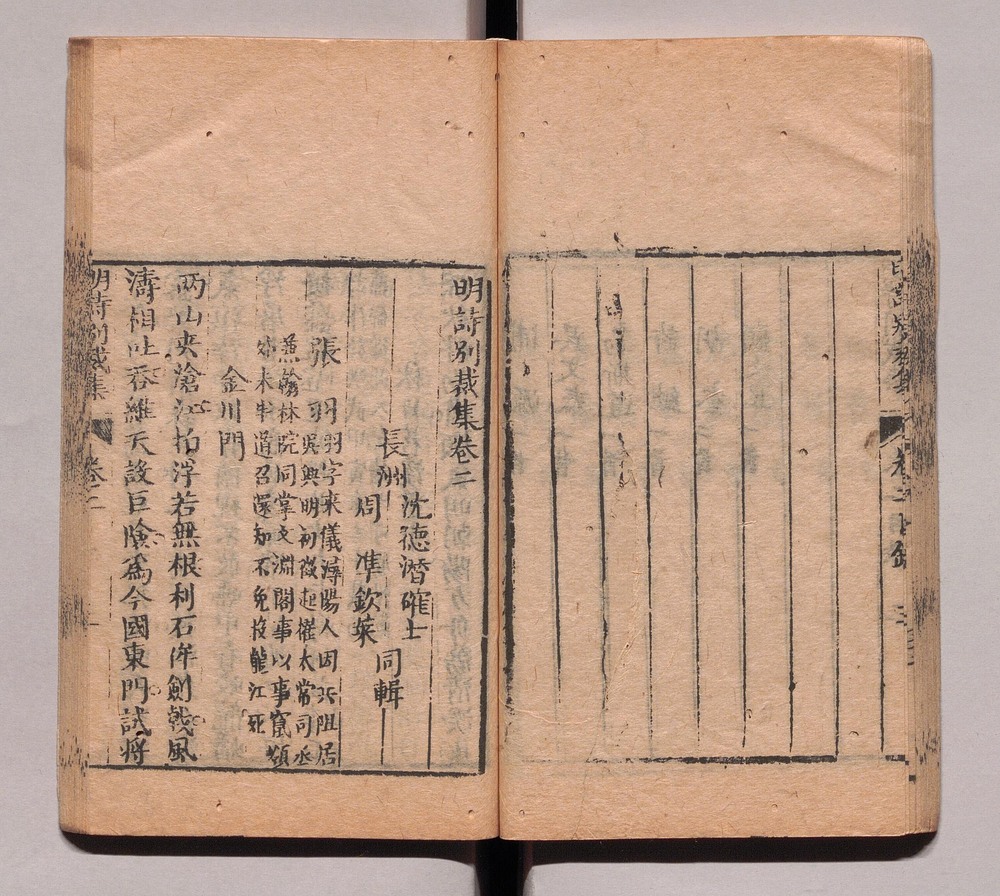 明詩別裁集 卷二目錄 三
明詩別裁集卷二
沈德潛確士
長洲 同輯
周準欽萊
張羽
羽字來儀潯陽人因兵阻居
吳興明初徵起擢太常司丞
兼翰林院同掌文淵閣事以事竄嶺
外未半道召還知不免投龍江死
金川門
两山夾滄江拍浮若無根利石侔劍戟風
濤相吐吞維天設巨險爲今國東門試將
明詩別裁集 卷二 一